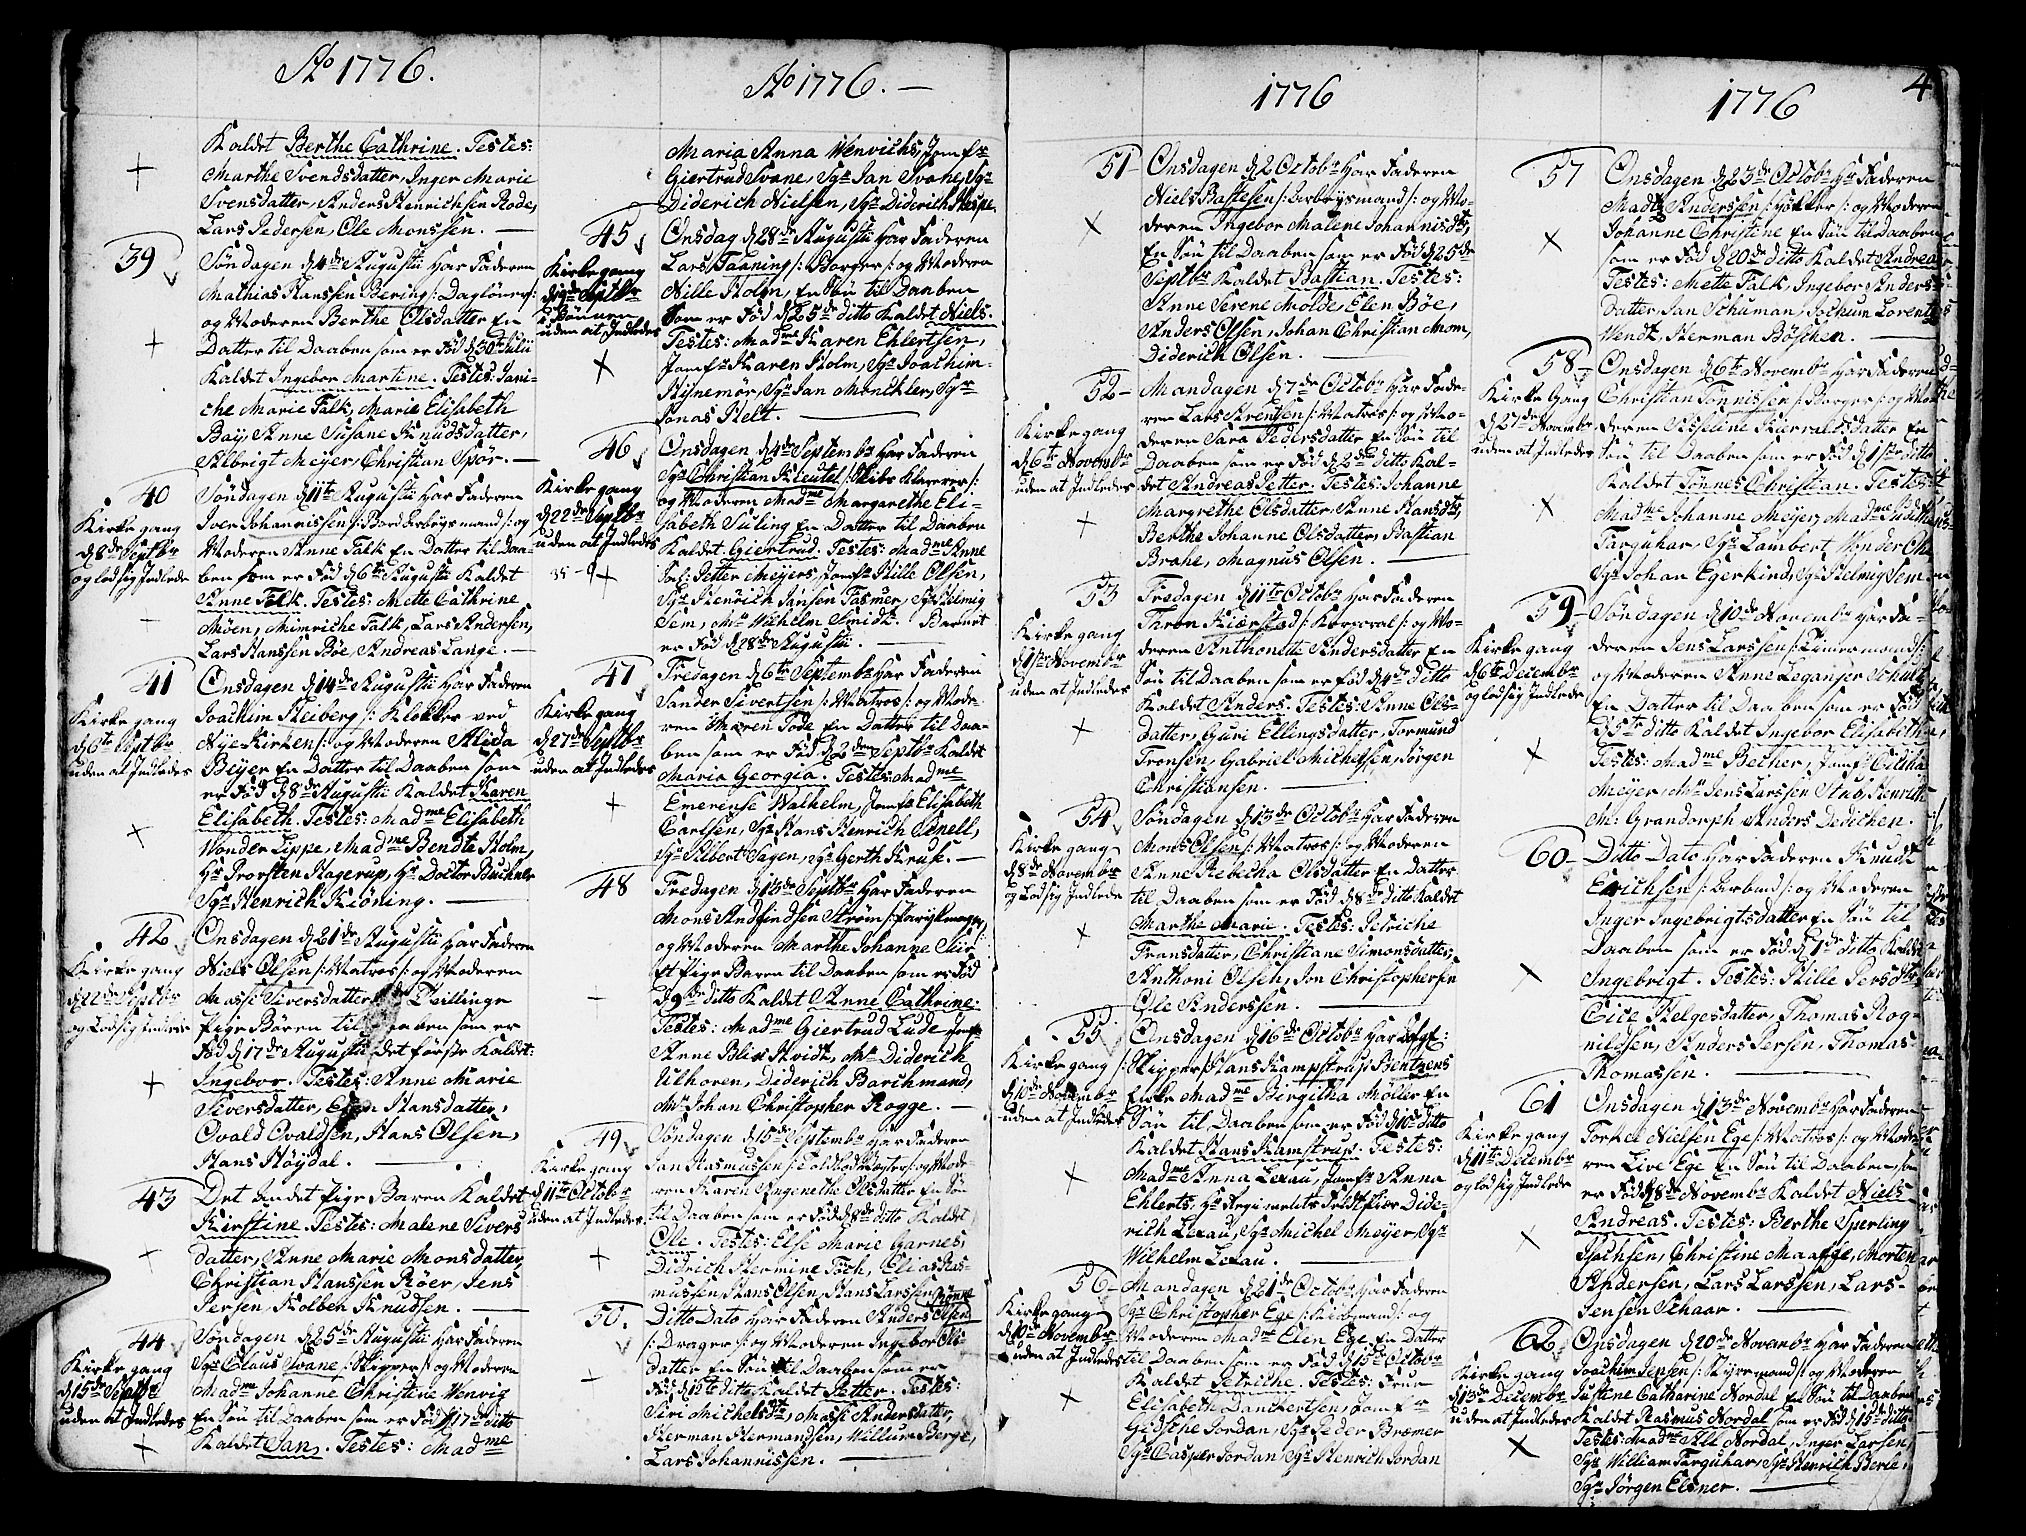 Ao 1776.
Kaldet Berthe Cathrine. Testes:
Marthe Svendsdatter, Inger Marie
Svensdatter, Anders Henrichsen Rode,
Lars Pedersen, Ole Monssen.
39
Søndagen d 4de Augustii Har Faderen
Mathias Hanssen Bering /: Dagløner :/
og Moderen Berthe Olsdatter En
Datter til Daaben som er Fød d 30te Julii
Kaldet Ingebor Martine. Testes: Jani-
che Marie Falk, Marie Elisabeth
Bay, Anne Susane Knudsdatter,
Albrigt Meyer, Christian Spør.
40
Kirke gang
d 8de Septbr
og lod sig Indlede
Søndagen d 11te Augustii Har Faderen
Iver Johannissen /: Bordarbeysmand :/ og
Moderen Anne Falk En Datter til Daa-
ben som er Fød d 6te Augustii Kaldet
Anne Falk. Testes: Mette Cathrine
Møen, Mimriche Falk, Lars Andersen,
Lars Hanssen Bøe, Andreas Lange.
41
Kirke gang
d 6te Septbr
uden at Indledes
Onsdagen d 14de Augustii Har Faderen
Joachim Heiberg /: Klokker ved
Nye-Kirken :/ og Moderen Alida
Beyer En Datter til Daaben som
er Fød d 8de Augustii Kaldet Karen
Elisabeth. Testes: Madme Elisabeth
Wonder Lippe, Madme Bendte Holm,
Hr Provsten Hagerup, Hr Doctor Buchner
Sgr Henrich Kiøning.
42
Kirke gang
d 22de Septbr
og Lod sig Indlede
Onsdagen d 21de Augustii Har Faderen
Niels Olsen /: Matros :/ og Moderen
Massi Siversdatter Tvillinge
Pige Børen til Daaben som er
Fød d 17de Augustii Det første Kaldet:
Ingebor. Testes: Anne Marie
Siversdatter, Elen Hansdatter,
Ovald Ovaldsen, Hans Olsen,
Hans Høydal.
43
Det Andet Pige Baren Kaldet
Kirstine. Testes: Malene Sivers
datter, Anne Marie Monsdatter,
Christian Hanssen Røer, Jens
Persen, Kolben Knudsen.
44
Kirke gang
d 15de Septbr
uden at Indledes
Søndagen d 25de Augustii Har Faderen
Sgr Claus Svane /: Skipper :/ og Moderen
Madme Johanne Christine Wenvig
En Søn til Daaben som er Fød d 17de ditto
Kaldet Jan. Testes: Madme
Ao 1776.
Maria Anna Wenvichs, Jomfr
Giertrud Svane, Sgr Jan Svane, Sgr
Diderich Nielsen, Sgr Diderich Hespe
45
Kirke gang
uden at Indledes
Onsdag d 28de Augustii Har Faderen
Lars Fanning /: Borger :/ og Moderen
Nille Holm, En Søn til Daaben
Som er Fød d 25de ditto Kaldet Niels.
Testes: Madme Karen Ehlertsen,
Jomfr Karen Holm, Sgr Joachim
Hijnemør, Sgr Jan Monchler, Sgr
Jonas Helt.
46
Kirke gang
d 22de Septbr
uden at Indledes
Onsdagen d 4de Septembr Har Faderen
Sgr Christian Kleutel /: Skibs Klarerer :/
og Moderen Madme Margarethe Eli-
sabeth Suling En Datter til Daaben
Kaldet Giertrud. Testes: Madme Anne
Sal: Petter Meyers, Jomfr Hille Olsen,
Sgr Henrich Jansen Fasmer, Sgr Helmig
Sem, Mr Wilhelm Smidt. Barnet
er Fød d 28de Augustii.
47
Kirke gang
d 27de Septbr
uden at Indledes
Fredagen d 6te Septembr Har Faderen
Sander Sivertsen /: Matros :/ og Mode-
ren Maren Tode En Datter til Daa-
ben som er Fød d 2den Septbr Kaldet
Maria Georgia. Testes: Madme
Emerense Walhelm, Jomfr Elisabeth
Carlsen, Sgr Hans Henrich Knell,
Sgr Albert Sagen, Sgr Gerth Kruk.
48
Fredagen d 13de Septbr Har Faderen
Mons Andfindsen Strøm
og Moderen Marthe Johanne Siur
Et Pige Baren til Daaben som er Fød
d 9de ditto Kaldet Anne Cathrine.
Testes: Madme Giertrud Lude, Jomfr
Anne Blix Hvidt, Mr Diderich
Ulhoren, Diderich Barchmand,
Mr Johan Christopher Rogge.
49
Kirke gang
d 11te Octobr
uden at Indledes
Søndagen d 15de Septembr Har Faderen
Jan Rasmussen og Mode-
ren Karen Angenethe Olsdatter En Søn
til Daaben som er Fød d 8de ditto Kaldet
Ole. Testes: Else Marie Garnes,
Didrich Hermine Fock, Elias Ras-
mussen, Hans Olsen, Hans Larssen
50.
Ditto Dato Har Faderen Anders Olsen
/: Drager :/ og Moderen Ingebor Ols-
datter En Søn til Daaben som er
Fød d 12te ditto Kaldet Petter. Testes:
Siri Michelsdtr, Massi Andersdatter,
Herman Hermandsen, Willum Berge,
Lars Johannissen.
1776
51
Onsdagen d 2 Octobr Har Faderen
Niels Bastesen /: Arbeysmand :/ og Mo-
deren Ingebor Malene Johannisdtr,
En Søn til Daaben som er Fød d 25de
Septbr Kaldet Bastian. Testes:
Anne Serene Molde, Elen Bøe,
Anders Olsen, Johan Christian Mom,
Diderich Olsen.
52
Kirke gang
d 6te Novembr
uden at Indledes
Mandagen d 7de Octobr Har Fade-
ren Lars Arentsen /: Matros :/ og Mo-
deren Sara Pedersdatter En Søn til
Daaben som er Fød d 2de ditto Kal-
det Andreas Petter. Testes: Johanne
Margrethe Olsdatter, Anne Hansdtr,
Berthe Johanne Olsdatter, Bastian
Brahe, Magnus Olsen.
53
Kirke gang
d 1ste Novembr
uden at Indledes
Fredagen d 11te Octobr Har Faderen
Taron Kierstad /: Korporal :/ og Mo-
deren Anthonette Andersdatter En
Søn til Daaben som er Fød d 4de ditto
Kaldet Anders. Testes: Anne Ols-
datter, Guri Ellingsdatter, Tormund
Tronsen, Gabriel Michelsen, Jørgen
Christiansen.
54
Kirke gang
d 8de Novembr
og Lod sig Indlede
Søndagen d 13de Octobr Har Faderen
Mons Olsen /: Matros :/ og Moderen
Anne Rebecha Olsdatter En Datter
til Daaben som er Fød d 8de ditto Kaldet
Marthe Marie. Testes: Petriche
Fransdatter, Christiane Simonsdatter,
Anthoni Olsen, Jon Christophersen
Ole Anderssen.
55
Kirke gang
d 10de Novembr
uden at Indledes
Onsdagen d 16de Octobr Har
/: Skipper :/ Hans Kampstrup Bentzens
Enke Madme Birgitha Møller En
Søn til Daaben som er Fød d 10de ditto
Kaldet Hans Kamstrup. Testes:
Madme Anna Lexau, Jomfr Anna
Ehlerts, Hr Regiments Feldskier Dide-
rich Lexau, Sgr Michel Meyer, Sgr
Wilhelm Lexau.
56
Kirke gang
d 10de Novembr
uden at Indledes
Mandagen d 21de Octobr Har Faderen
Sgr Christopher Ege /: Kiøbmand :/ og
Moderen Madme Elen Ege En Datter
til Daaben som er Fød d 15de Octobr
Kaldet Petriche. Testes: Frue
Elisabeth Danckertsen, Jomfr
Gidsche Jordan, Sgr Peder Bræmer
Sgr Casper Jordan, Sgr Henrich Jordan
1776
4
57
Onsdagen d 23de Octobr Har Faderen
Madts Anderssen /: Høkker :/ og Moderen
Johanne Christine En Søn til Daaben
som er Fød d 20de ditto Kaldet Andreas
Testes: Mette Falk, Ingebor Anders
Datter, Jan Schuman, Jochum Lorentzs
Wendt, Herman Bøschen.
58
Kirke Gang
d 27de Novembr
uden at Indledes
Onsdagen d 6te Novembr Har Faderen
Christian Tønnissen /: Borger :/ og Mo-
deren Asseline Kierraldsdatter En
Søn til Daaben som er Fød d 1ste ditto
Kaldet Tønnes Christian. Testes:
Madme Johanne Meyer, Madme Judithe
Farquhar, Sgr Lambert Wonder Ohe
Sgr Johan Egerkind, Sgr Helmig Sem
59
Kirke gang
d 6te Decembr
og lod sig Indlede
Søndagen d 10de Novembr Har Fa-
deren Jens Larssen /: Timermand :/
og Moderen Anne Leganger Schultz
En Datter til Daaben som er Fød
d 5te ditto Kaldet Ingebor Elisabeth
Testes: Madme Becher, Jomfr Cicilia
Meyer, Mr Jens Larssen Stub, Henrich
M: Grandorph, Anders Dedichen.
60
Ditto Dato Har Faderen Knudt
Erichsen og Moderen
Inger Ingebrigtsdatter En Søn til
Daaben som er Fød d 1de ditto Kaldet
Ingebrigt. Testes: Hille Persdtr,
Cice Helgesdatter, Thomas Rog-
nildsen, Anders Persen, Thomas
Thomassen.
61
Kirke gang
d 11te Decembr
og lod sig Indlede
Onsdagen d 13de Novembr Har Faderen
Torkel Nielsen Ege /: Matros :/ og Mode-
ren Live Ege En Søn til Daaben, som
er Fød d 8de Novembr Kaldet Niels
Andreas. Testes: Berthe Sperling
Isachsen, Christine Maasse, Morten
Andersen, Lars Larssen, Lars
Jensen Schaar.
62
Kirke gang
d 13de Decembr
uden at Indledes
Onsdagen d 20de Novembr Har Faderen
Joachim Jensen /: Styrmand :/ og Moderen
Justine Catharine Nordal En Søn til Daaben
Kaldet Rasmus Nordal som er Fød d 15de ditto
Testes: Madme Alt Nordal, Inger Larsen,
Sgr William Farquhar, Sgr Henrich Berle,
Sgr Jørgen Elsner.